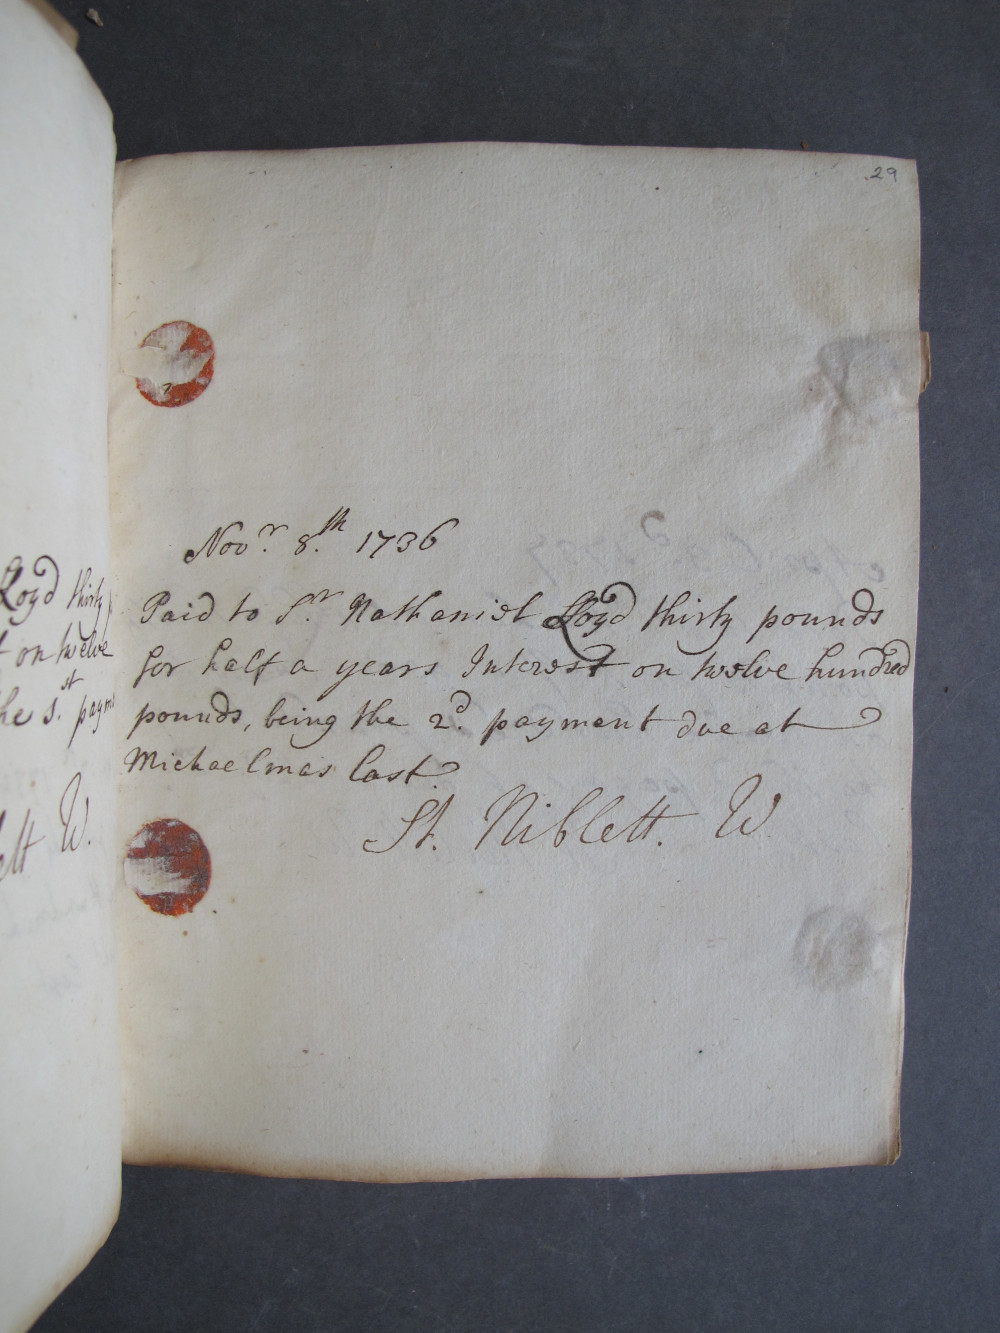 29
Novr. 8.th 1736
Paid to Sr. Nathaniel Lloyd thirty pounds
for half a years Interest on twelve hundred
pounds, being the 2d. payment due at
Michaelmas last.
St. Niblett. W
Lloyd thirty
on twelve
he s.st paym
ett W.